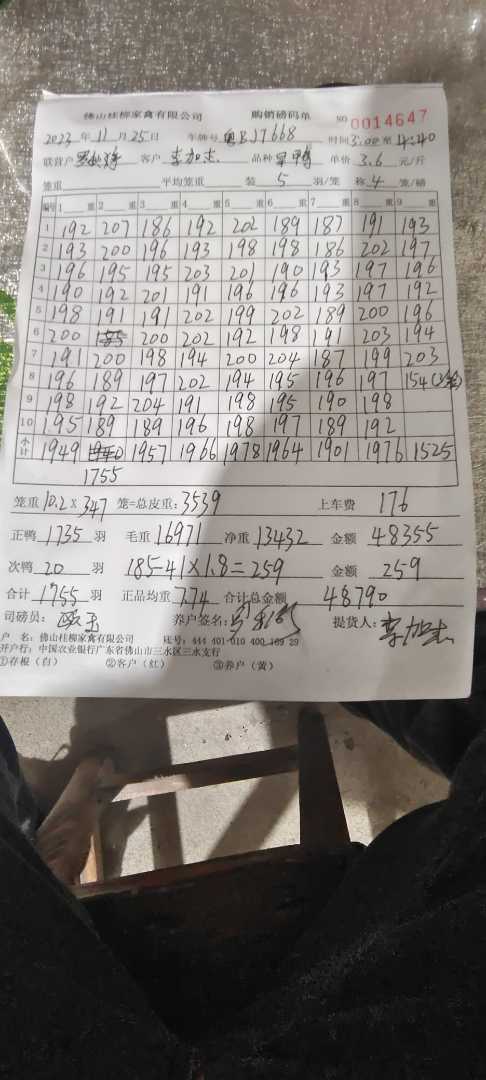 佛山桂柳家禽有限公司 购销磅码单 NO 0014647
2023年11月25日 车牌号 粤BJ7668 时间3:00至14:40
联营户 客户 李加志 品种 单价 3.6 元/斤
笼重 平均笼重 装 5 羽/笼 称 4 笼/磅
编号 1 重 2 重 3 重 4 重 5 重 6 重 7 重 8 重 9 重
1 192 207 186 192 202 189 187 191 193
2 193 200 196 193 198 198 186 202 197
3 196 195 195 203 201 190 193 197 196
4 190 192 201 191 196 196 193 197 192
5 198 191 191 202 199 202 189 200 196
6 200 185 200 202 192 198 191 203 194
7 191 200 198 194 200 204 187 199 203
8 196 189 197 202 194 195 196 197 154(3笼)
9 198 192 204 191 198 195 190 198
10 195 189 189 196 198 197 189 192
小计 1949 1957 1966 1978 1964 1901 1976 1525
1755
笼重 10.2×347 笼=总皮重: 3539 上车费 176
正鸭 1735 羽 毛重 16971 净重 13432 金额 48355
次鸭 20 羽 185-41×1.8=259 金额 259
合计 1755 羽 正品均重 7.74 合计总金额 48790
司磅员: 养户签名: 提货人: 李加志
户 名: 佛山桂柳家禽有限公司 账号: 444 401 010 400 169 29
开户行: 中国农业银行广东省佛山市三水区三水支行
①存根(白) ②客户(红) ③养户(黄)